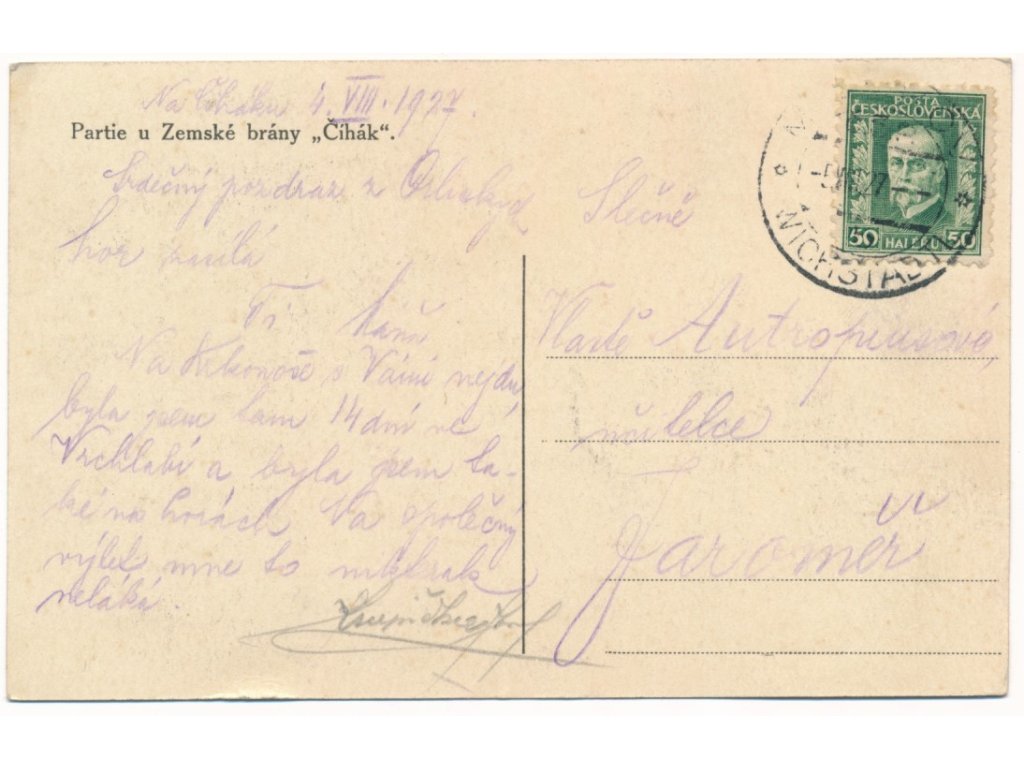 Na Čiháku 4. VIII. 1927.
Partie u Zemské brány „Číhák“.
Srdečný pozdrav z Orlických
hor zasílá
Ti Máňa
Na Krkonoše s Vámi nejdu,
byla jsem tam 14 dní ve
Vrchlabí a byla jsem ta-
ké na horách. Na společný
výlet mne to nikterak
neláká.
POŠTA
ČESKOSLOVENSKÁ
50 HALÉŘŮ 50
WICHSTADTL
Slečně
Vlastě Autropiusová,
učitelce
Jaroměř